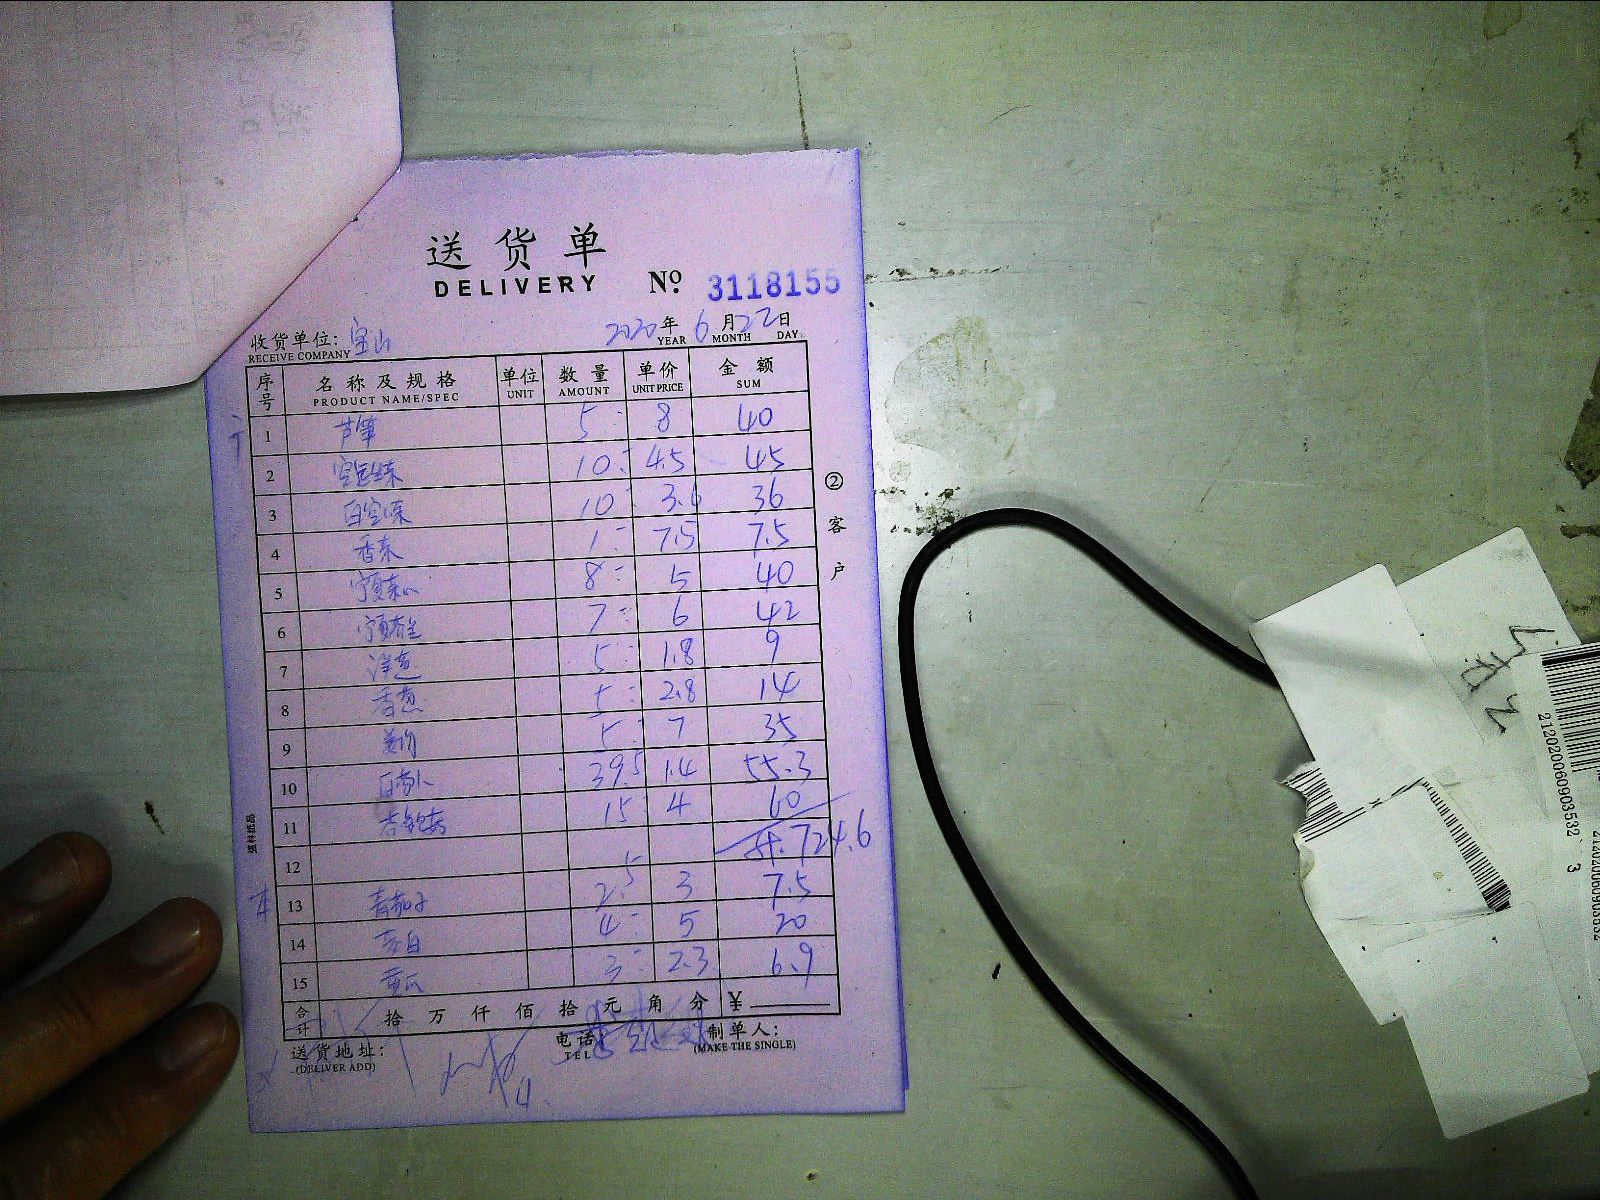 送货单
DELIVERY № 3118155
收货单位: 宝山 2020年6月22日
RECEIVE COMPANY YEAR MONTH DAY
序号 名称及规格 单位 数量 单价 金额
PRODUCT NAME/SPEC UNIT AMOUNT UNIT PRICE SUM
1 芦笋 5 8 40
2 10 4.5 45
3 10 3.6 36
4 香菜 1 7.5 7.5
5 宁夏菜心 8 5 40
6 7 6 42
7 洋葱 5 1.8 9
8 香葱 5 2.8 14
9 5 7 35
10 白萝卜 39.5 1.4 55.3
11 杏鲍菇 15 4 60
12 724.6
13 青茄子 2.5 3 7.5
14 茭白 4 5 20
15 黄瓜 3 2.3 6.9
合计 拾 万 仟 佰 拾 元 角 分 ¥
送货地址: 电话 制单人:
(DELIVER ADD) TEL (MAKE THE SINGLE)
②客户
212020060903532 3